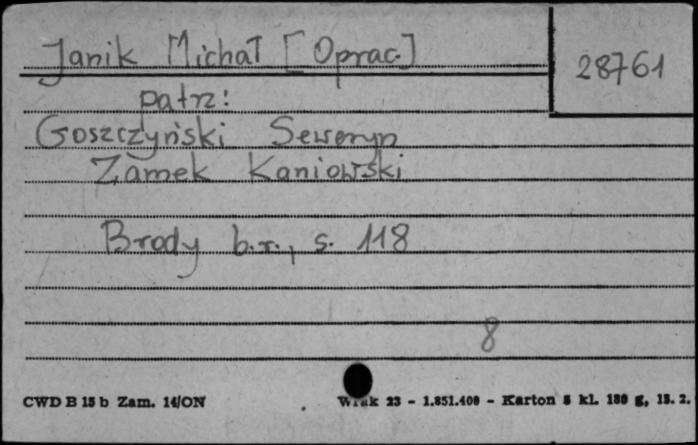 Janik Michał [Oprac.]
28761
patrz:
Goszczyński Seweryn
Zamek Kaniowski
Brody b.r., s. 118
8
CWD B 15 b Zam. 14/ON
23 - 1.851.400 - Karton 8 kl. 180 g, 15. 2.